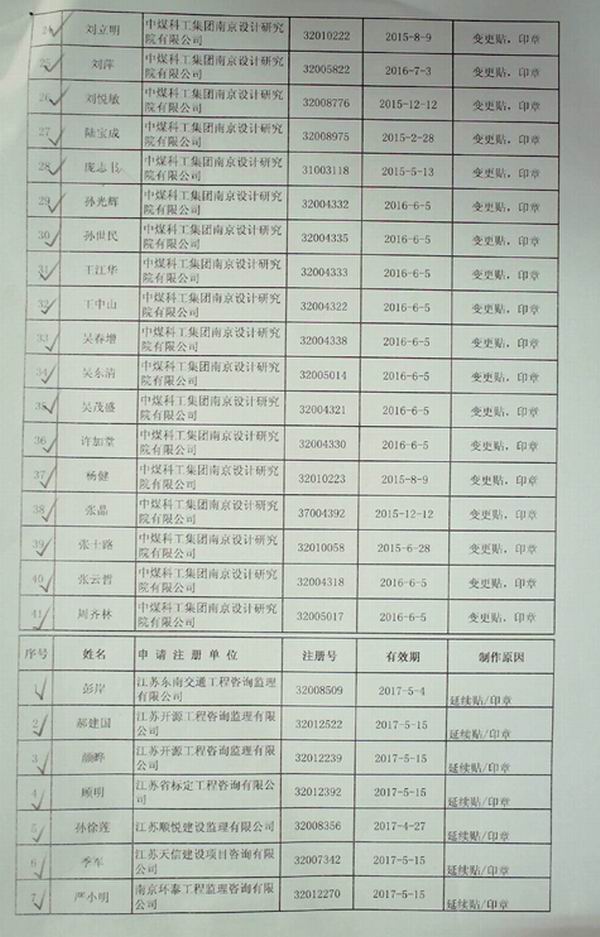 24 刘立明 中煤科工集团南京设计研究院有限公司 32010222 2015-8-9 变更贴，印章
25 刘萍 中煤科工集团南京设计研究院有限公司 32005822 2016-7-3 变更贴，印章
26 刘悦敏 中煤科工集团南京设计研究院有限公司 32008776 2015-12-12 变更贴，印章
27 陆宝成 中煤科工集团南京设计研究院有限公司 32008975 2015-2-28 变更贴，印章
28 庞志书 中煤科工集团南京设计研究院有限公司 31003118 2015-5-13 变更贴，印章
29 孙光辉 中煤科工集团南京设计研究院有限公司 32004332 2016-6-5 变更贴，印章
30 孙世民 中煤科工集团南京设计研究院有限公司 32004335 2016-6-5 变更贴，印章
31 王江华 中煤科工集团南京设计研究院有限公司 32004333 2016-6-5 变更贴，印章
32 王中山 中煤科工集团南京设计研究院有限公司 32004322 2016-6-5 变更贴，印章
33 吴春增 中煤科工集团南京设计研究院有限公司 32004338 2016-6-5 变更贴，印章
34 吴东清 中煤科工集团南京设计研究院有限公司 32005014 2016-6-5 变更贴，印章
35 吴茂盛 中煤科工集团南京设计研究院有限公司 32004321 2016-6-5 变更贴，印章
36 许加堂 中煤科工集团南京设计研究院有限公司 32004330 2016-6-5 变更贴，印章
37 杨健 中煤科工集团南京设计研究院有限公司 32010223 2015-8-9 变更贴，印章
38 张晶 中煤科工集团南京设计研究院有限公司 37004392 2015-12-12 变更贴，印章
39 张士路 中煤科工集团南京设计研究院有限公司 32010058 2015-6-28 变更贴，印章
40 张云哲 中煤科工集团南京设计研究院有限公司 32004318 2016-6-5 变更贴，印章
41 周齐林 中煤科工集团南京设计研究院有限公司 32005017 2016-6-5 变更贴，印章
序号 姓名 申请注册单位 注册号 有效期 制作原因
1 彭岸 江苏东南交通工程咨询监理有限公司 32008509 2017-5-4 延续贴/印章
2 郝建国 江苏开源工程咨询监理有限公司 32012522 2017-5-15 延续贴/印章
3 颜晔 江苏开源工程咨询监理有限公司 32012239 2017-5-15 延续贴/印章
4 顾明 江苏省标定工程咨询有限公司 32012392 2017-5-15 延续贴/印章
5 孙徐莲 江苏顺悦建设监理有限公司 32008356 2017-4-27 延续贴/印章
6 季军 江苏天信建设项目咨询有限公司 32007342 2017-5-15 延续贴/印章
7 严小明 南京环泰工程监理咨询有限公司 32012270 2017-5-15 延续贴/印章